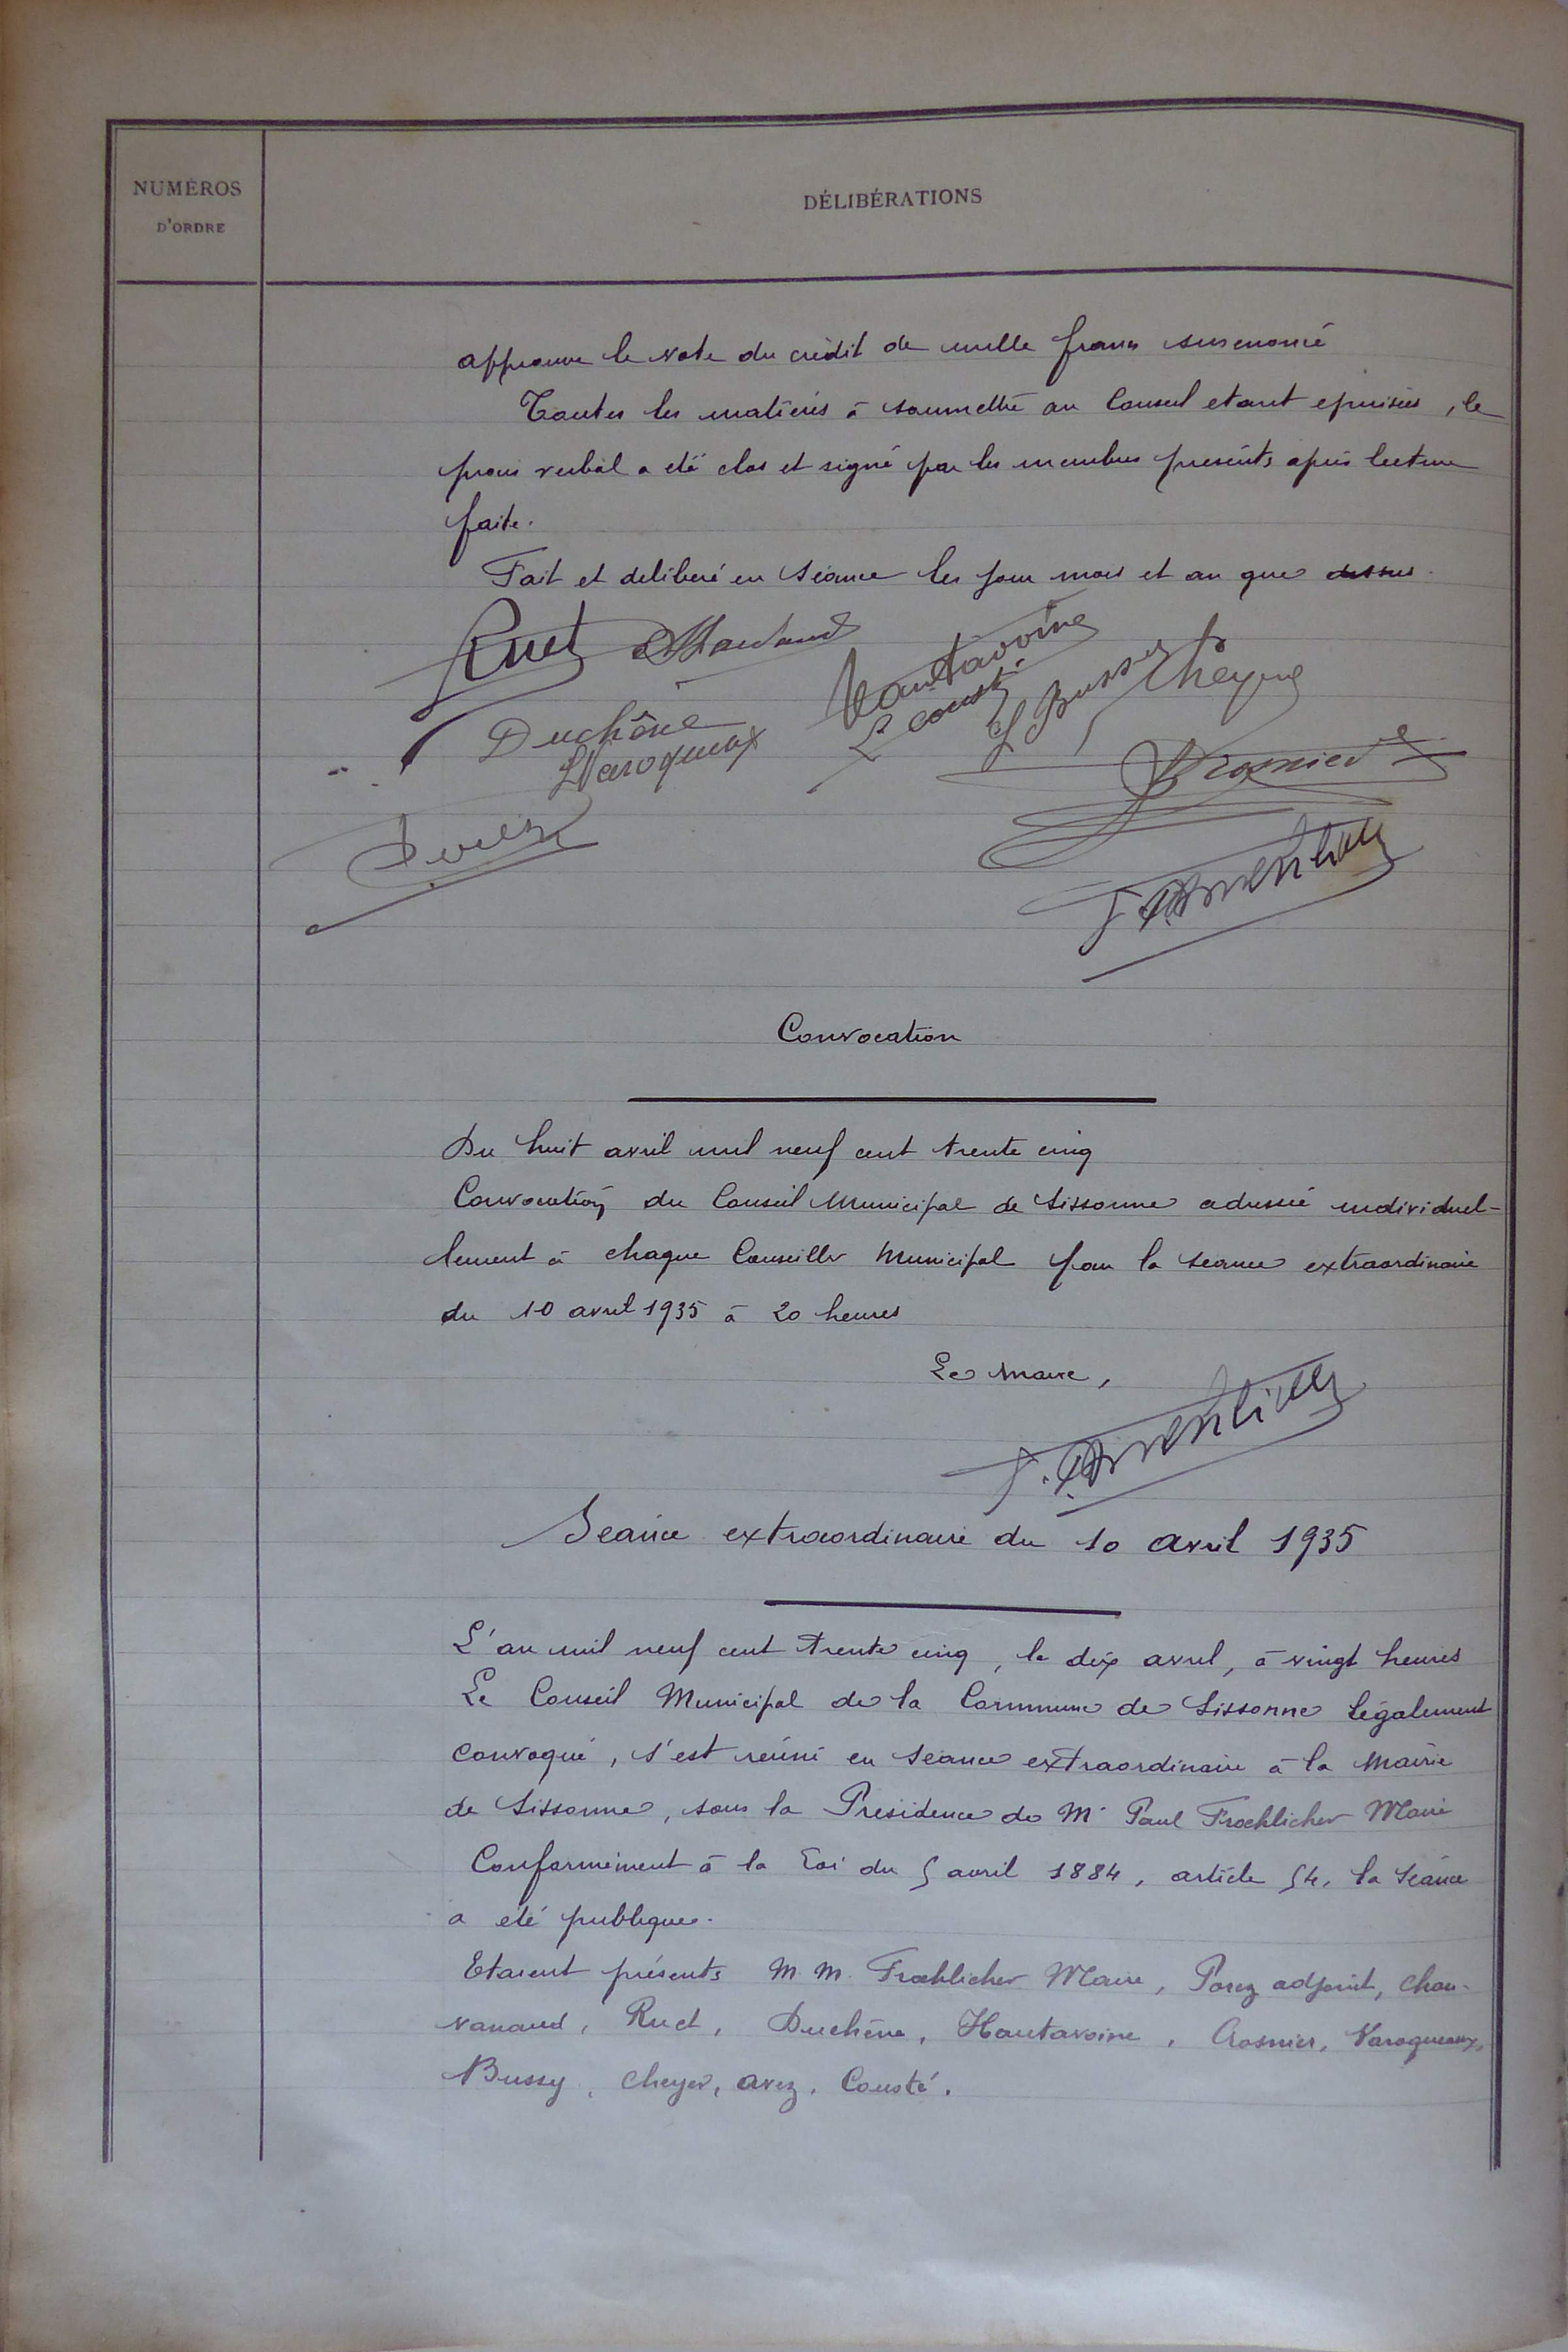 NUMÉROS
D'ORDRE
DÉLIBÉRATIONS
approuve le vote du crédit de mille francs susenoncé
Toutes les matières à soumettre au Conseil etant epuisées, le
procès verbal a été clos et signé par les membres presents après lecture
faite.
Fait et deliberé en séance les jour mois et an que dessus.
Ruet
Hautavoine
L Bussy
Cheyer
Duchêne
L Varoqueaux
L Cousté
Crosnier
Convocation
Du huit avril mil neuf cent trente cinq
Convocation du Conseil Municipal de Sissonne adressée individuel-
lement à chaque Conseiller Municipal pour la seance extraordinaire
du 10 avril 1935 à 20 heures
Le Maire,
Seance extraordinaire du 10 avril 1935
L'an mil neuf cent trente cinq, le dix avril, à vingt heures
Le Conseil Municipal de la Commune de Sissonne légalement
convoqué, s'est réuni en seance extraordinaire à la Mairie
de Sissonne, sous la Presidence de Mr Paul Froehlicher Maire
Conformément à la Loi du 5 avril 1884, article 54, la séance
a été publique.
Etaient présents M.M. Froehlicher Maire, Porez adjoint, Chau-
vanaud, Ruet, Duchêne, Hautavoine, Crosnier, Varoqueaux,
Bussy, Cheyer, Avez, Cousté.